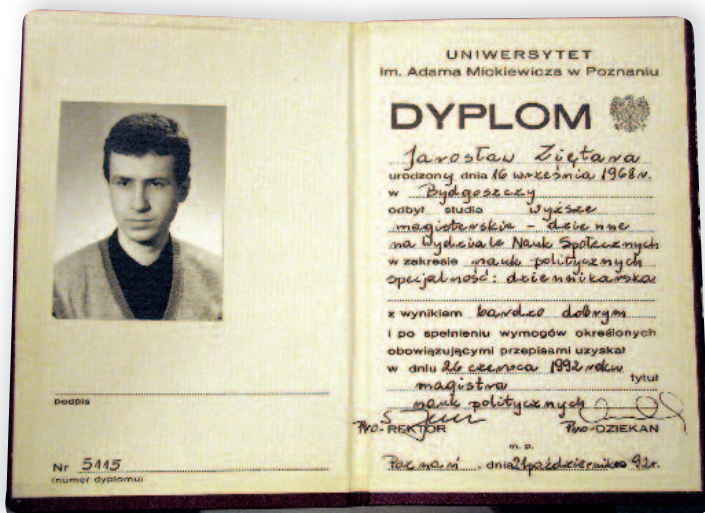 Podpis
Nr 5115
(numer dyplomu)
UNIWERSYTET
im. Adama Mickiewicza w Poznaniu
DYPLOM
Jarosław Ziętara
urodzony dnia 16 września 1968 r.
w Bydgoszczy
odbył studia wyższe
magisterskie - dzienne
na Wydziale Nauk Społecznych
w zakresie nauk politycznych
specjalność: dziennikarska
z wynikiem bardzo dobrym
i po spełnieniu wymogów określonych
obowiązującymi przepisami uzyskał
w dniu 26 czerwca 1992 roku
tytuł
magistra
nauk politycznych
Pro-REKTOR Pro-DZIEKAN
m. p.
Poznań, dnia 21 października 92 r.